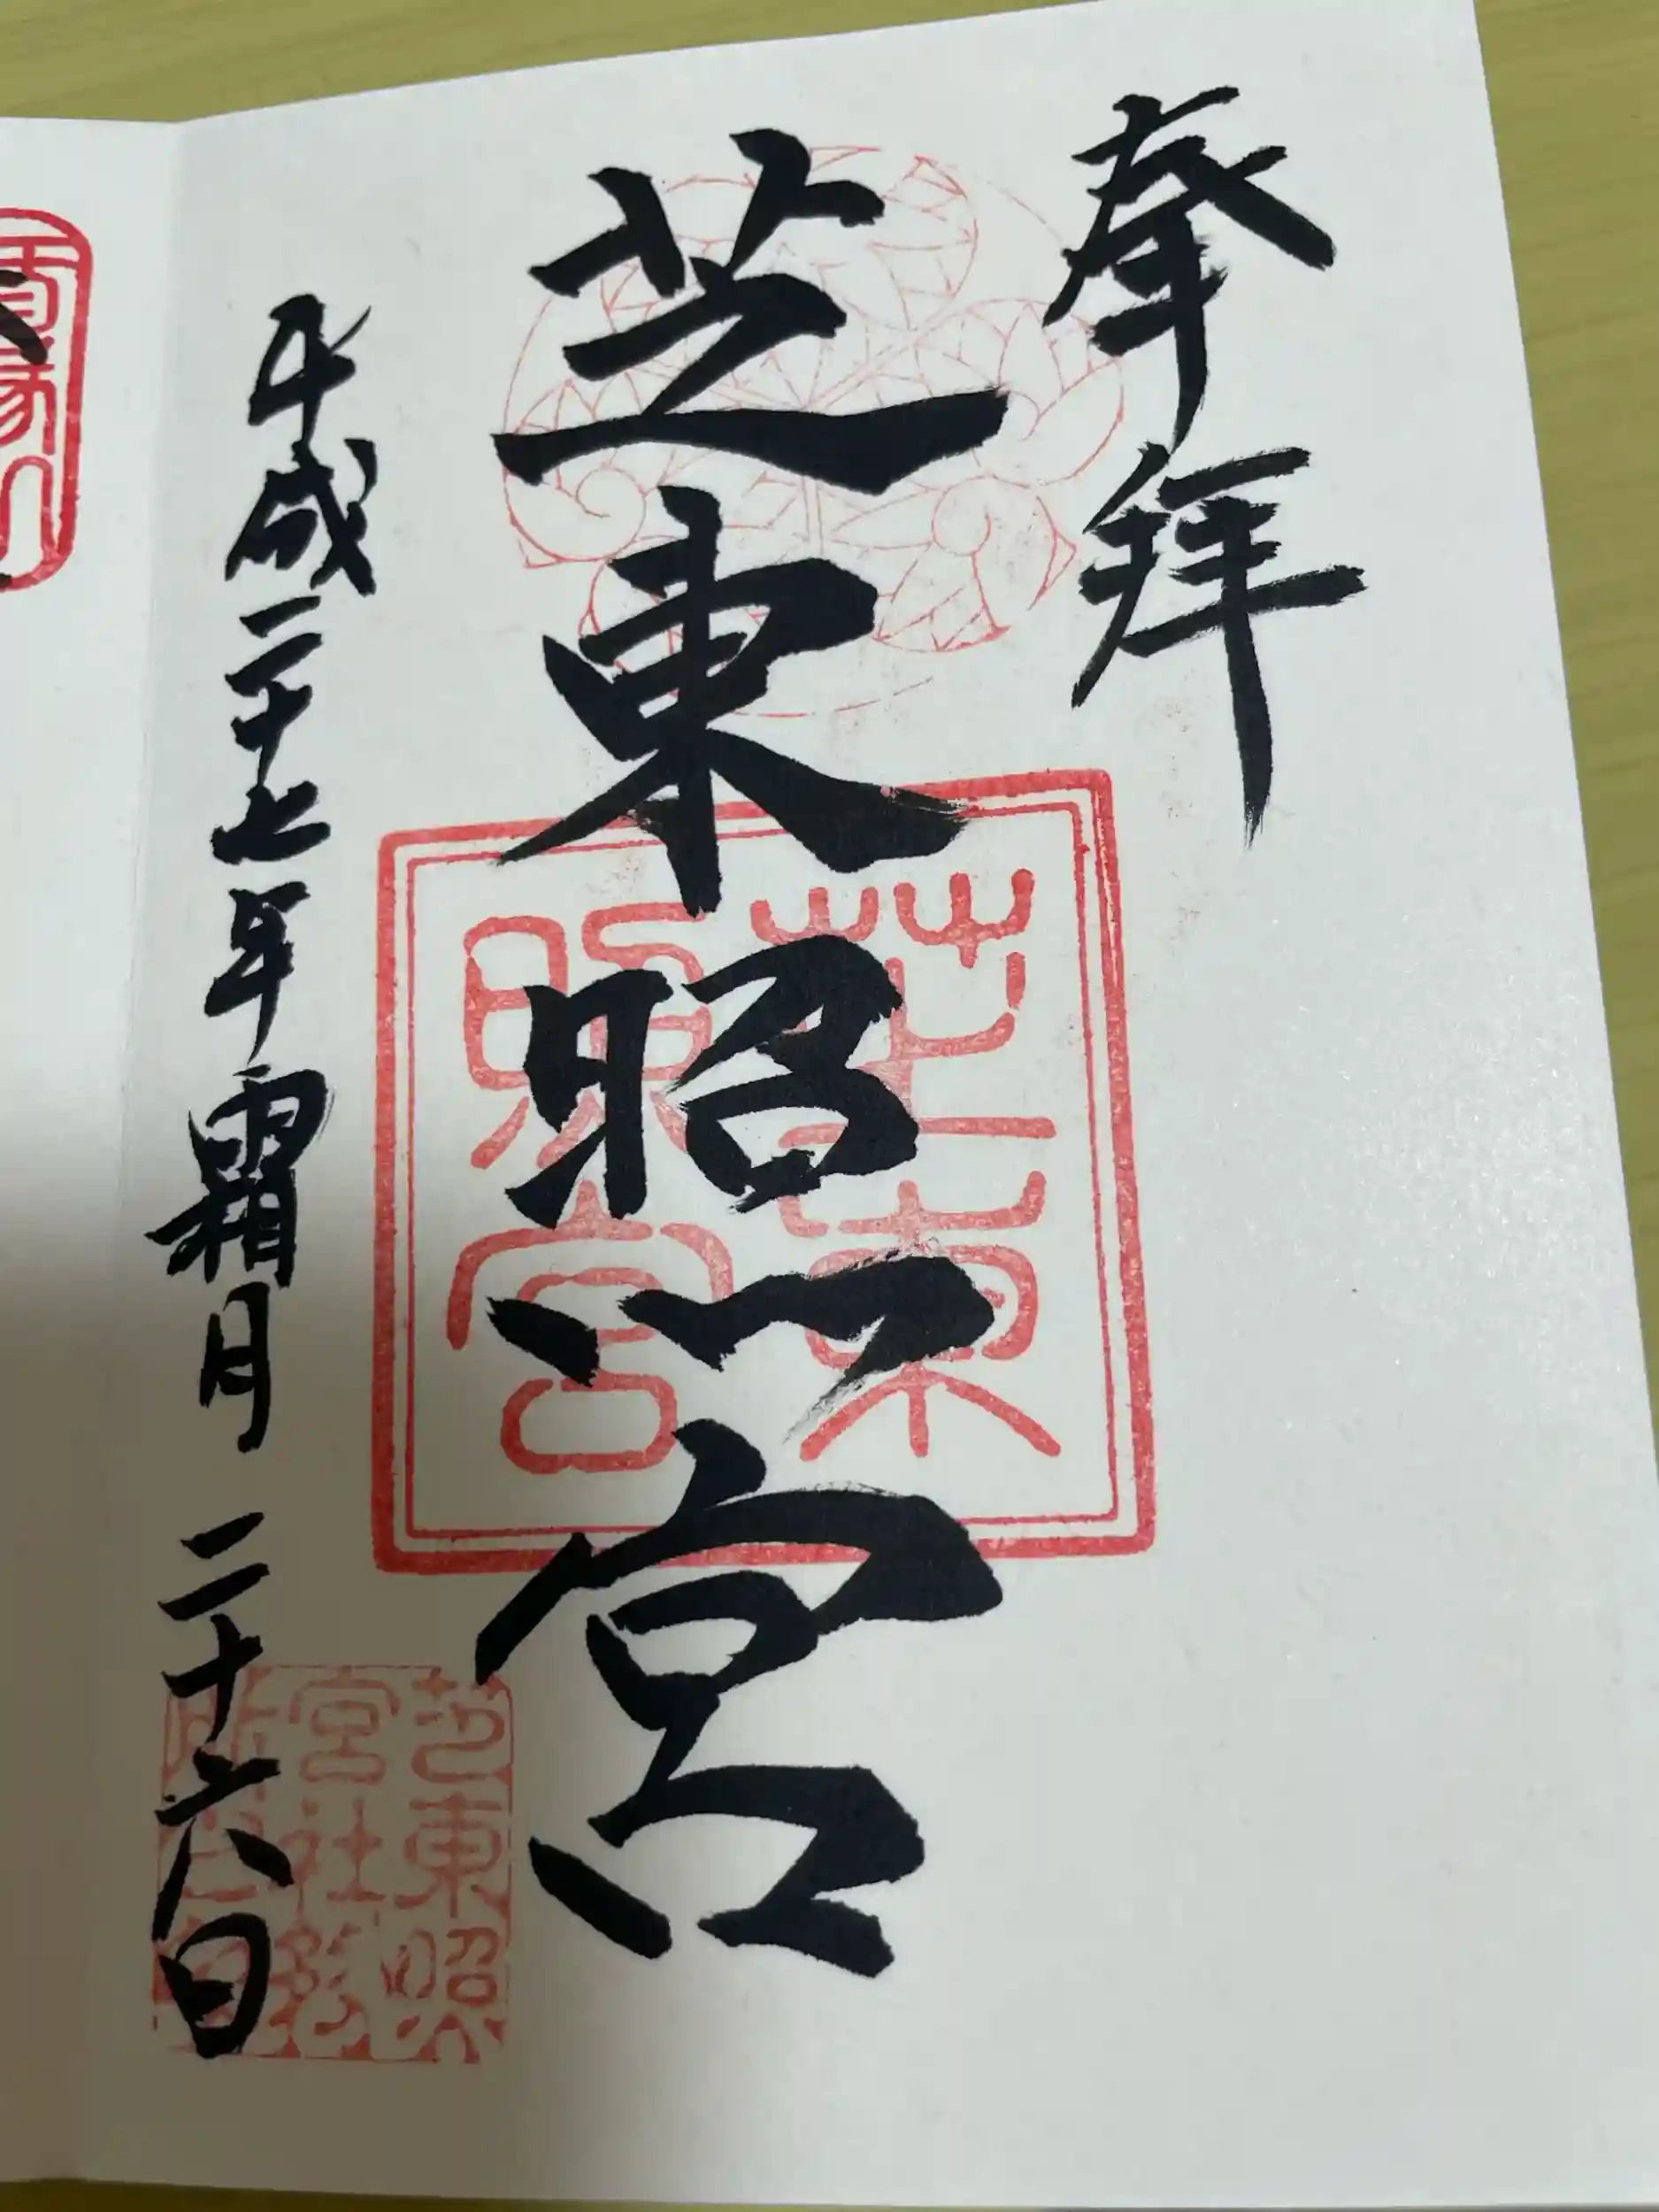 奉拝
芝東照宮
平成二十七年霜月二十六日
芝東照宮
芝東照宮社務